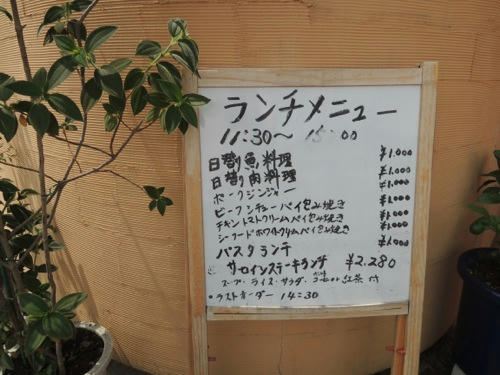 ランチメニュー
11:30〜 15:00
日替り魚料理 ¥1,000
日替り肉料理 ¥1,000
ポークジンジャー ¥1,000
ビーフシチューパイ包み焼き ¥1,000
チキントマトクリームパイ包み焼き ¥1,000
シーフードホワイトクリームパイ包み焼き ¥1,000
パスタランチ ¥1,000
サーロインステーキランチ ¥2,280
スープ・ライス・サラダ・コーヒーor紅茶 付
・ラストオーダー 14:30